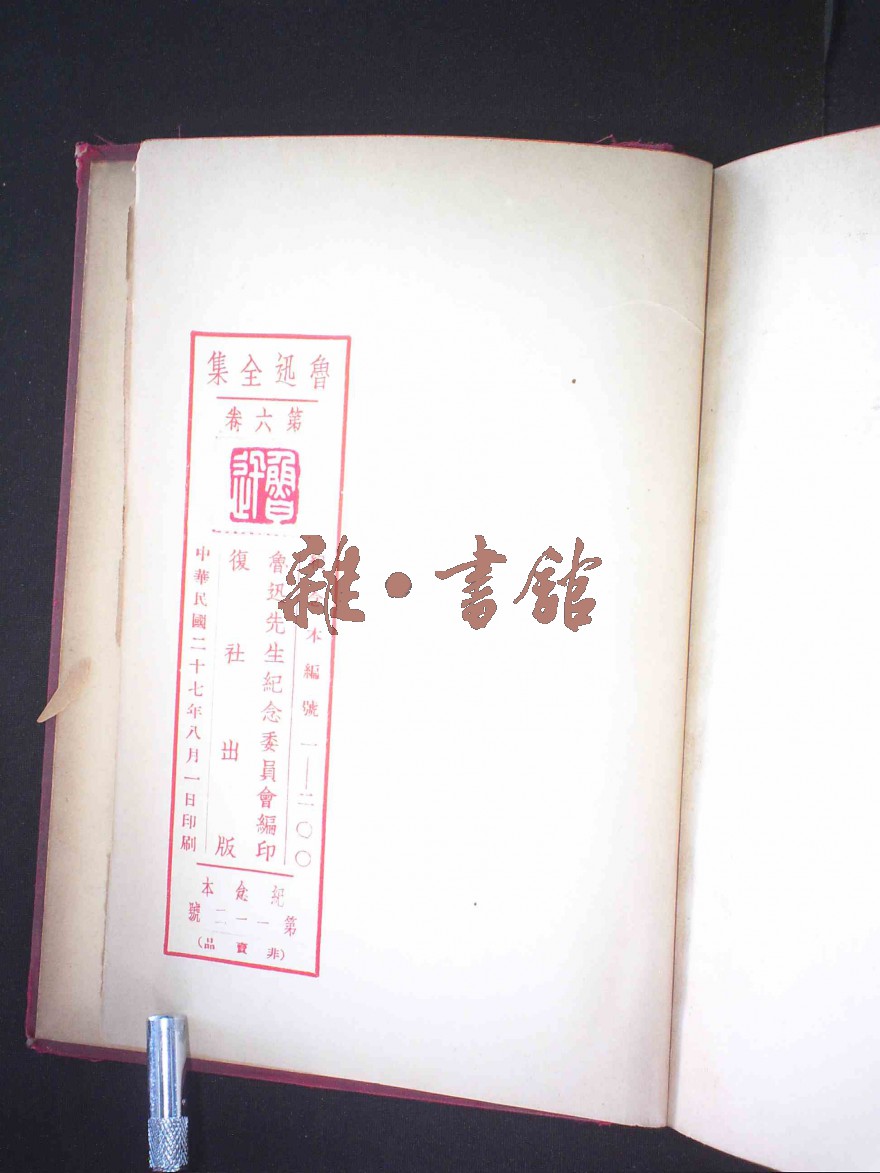 魯迅全集
第六卷
魯迅
本編號一—二〇〇
魯迅先生紀念委員會編印
復社出版
中華民國二十七年八月一日印刷
紀念本
第一一二號
(非賣品)
雜·書館